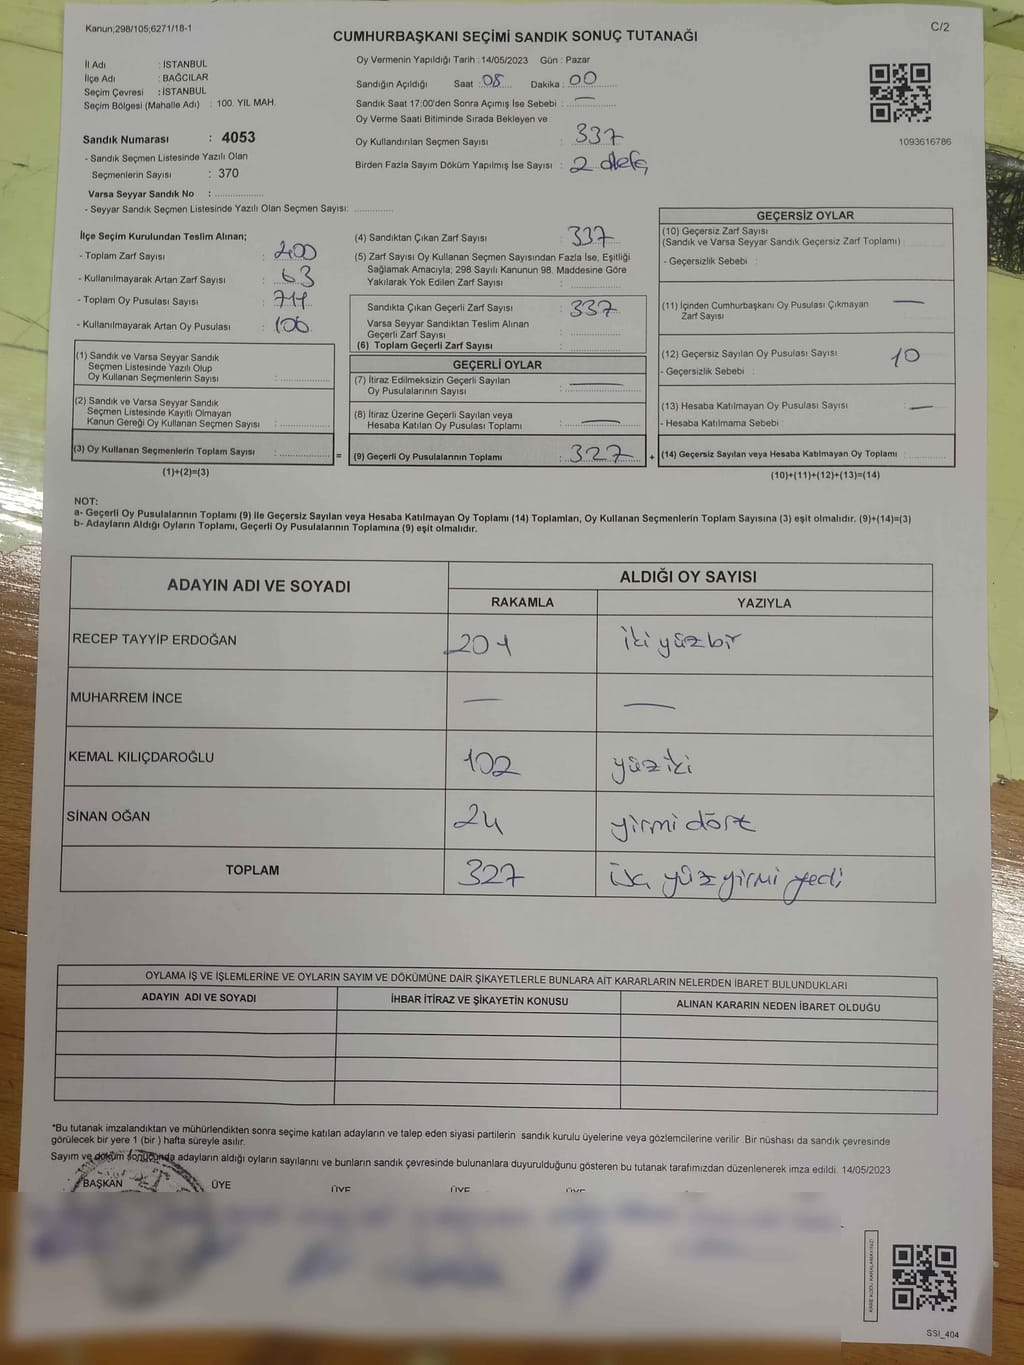 Kanun;298/105;6271/18-1
C/2
CUMHURBAŞKANI SEÇİMİ SANDIK SONUÇ TUTANAĞI
İl Adı : İSTANBUL
İlçe Adı : BAĞCILAR
Seçim Çevresi : İSTANBUL
Seçim Bölgesi (Mahalle Adı) : 100. YIL MAH.
Sandık Numarası : 4053
- Sandık Seçmen Listesinde Yazılı Olan
Seçmenlerin Sayısı : 370
Varsa Seyyar Sandık No :
- Seyyar Sandık Seçmen Listesinde Yazılı Olan Seçmen Sayısı:
Oy Vermenin Yapıldığı Tarih : 14/05/2023 Gün : Pazar
Sandığın Açıldığı Saat : 08 Dakika : 00
Sandık Saat 17:00'den Sonra Açımış İse Sebebi : —
Oy Verme Saati Bitiminde Sırada Bekleyen ve
Oy Kullandırılan Seçmen Sayısı : 337
Birden Fazla Sayım Döküm Yapılmış İse Sayısı : 2 defa
1093616786
İlçe Seçim Kurulundan Teslim Alınan;
- Toplam Zarf Sayısı : 400
- Kullanılmayarak Artan Zarf Sayısı : 63
- Toplam Oy Pusulası Sayısı :
- Kullanılmayarak Artan Oy Pusulası :
(1) Sandık ve Varsa Seyyar Sandık
Seçmen Listesinde Yazılı Olup
Oy Kullanan Seçmenlerin Sayısı :
(2) Sandık ve Varsa Seyyar Sandık
Seçmen Listesinde Kayıtlı Olmayan
Kanun Gereği Oy Kullanan Seçmen Sayısı :
(3) Oy Kullanan Seçmenlerin Toplam Sayısı :
(1)+(2)=(3)
=
(4) Sandıktan Çıkan Zarf Sayısı : 337
(5) Zarf Sayısı Oy Kullanan Seçmen Sayısından Fazla İse, Eşitliği
Sağlamak Amacıyla; 298 Sayılı Kanunun 98. Maddesine Göre
Yakılarak Yok Edilen Zarf Sayısı :
Sandıkta Çıkan Geçerli Zarf Sayısı : 337
Varsa Seyyar Sandıktan Teslim Alınan
Geçerli Zarf Sayısı :
(6) Toplam Geçerli Zarf Sayısı :
GEÇERLİ OYLAR
(7) İtiraz Edilmeksizin Geçerli Sayılan
Oy Pusulalarının Sayısı : —
(8) İtiraz Üzerine Geçerli Sayılan veya
Hesaba Katılan Oy Pusulası Toplamı : —
(9) Geçerli Oy Pusulalarının Toplamı : 327
+
GEÇERSİZ OYLAR
(10) Geçersiz Zarf Sayısı
(Sandık ve Varsa Seyyar Sandık Geçersiz Zarf Toplamı) :
- Geçersizlik Sebebi :
(11) İçinden Cumhurbaşkanı Oy Pusulası Çıkmayan
Zarf Sayısı —
(12) Geçersiz Sayılan Oy Pusulası Sayısı : 10
- Geçersizlik Sebebi :
(13) Hesaba Katılmayan Oy Pusulası Sayısı : —
- Hesaba Katılmama Sebebi
(14) Geçersiz Sayılan veya Hesaba Katılmayan Oy Toplamı :
(10)+(11)+(12)+(13)=(14)
NOT:
a- Geçerli Oy Pusulalarının Toplamı (9) İle Geçersiz Sayılan veya Hesaba Katılmayan Oy Toplamı (14) Toplamları, Oy Kullanan Seçmenlerin Toplam Sayısına (3) eşit olmalıdır. (9)+(14)=(3)
b- Adayların Aldığı Oyların Toplamı, Geçerli Oy Pusulalarının Toplamına (9) eşit olmalıdır.
ADAYIN ADI VE SOYADI
ALDIĞI OY SAYISI
RAKAMLA YAZIYLA
RECEP TAYYİP ERDOĞAN 201 iki yüz bir
MUHARREM İNCE — —
KEMAL KILIÇDAROĞLU 102 yüz iki
SİNAN OĞAN 24 yirmi dört
TOPLAM 327 yüz yirmi yedi
OYLAMA İŞ VE İŞLEMLERİNE VE OYLARIN SAYIM VE DÖKÜMÜNE DAİR ŞİKAYETLERLE BUNLARA AİT KARARLARIN NELERDEN İBARET BULUNDUKLARI
ADAYIN ADI VE SOYADI İHBAR İTİRAZ VE ŞİKAYETİN KONUSU ALINAN KARARIN NEDEN İBARET OLDUĞU
*Bu tutanak imzalandıktan ve mühürlendikten sonra seçime katılan adayların ve talep eden siyasi partilerin sandık kurulu üyelerine veya gözlemcilerine verilir .Bir nüshası da sandık çevresinde
görülecek bir yere 1 (bir ) hafta süreyle asılır.
Sayım ve döküm sonucunda adayların aldığı oyların sayılarını ve bunların sandık çevresinde bulunanlara duyurulduğunu gösteren bu tutanak tarafımızdan düzenlenerek imza edildi. 14/05/2023
BAŞKAN ÜYE ÜYE ÜYE ÜYE
SSİ_404